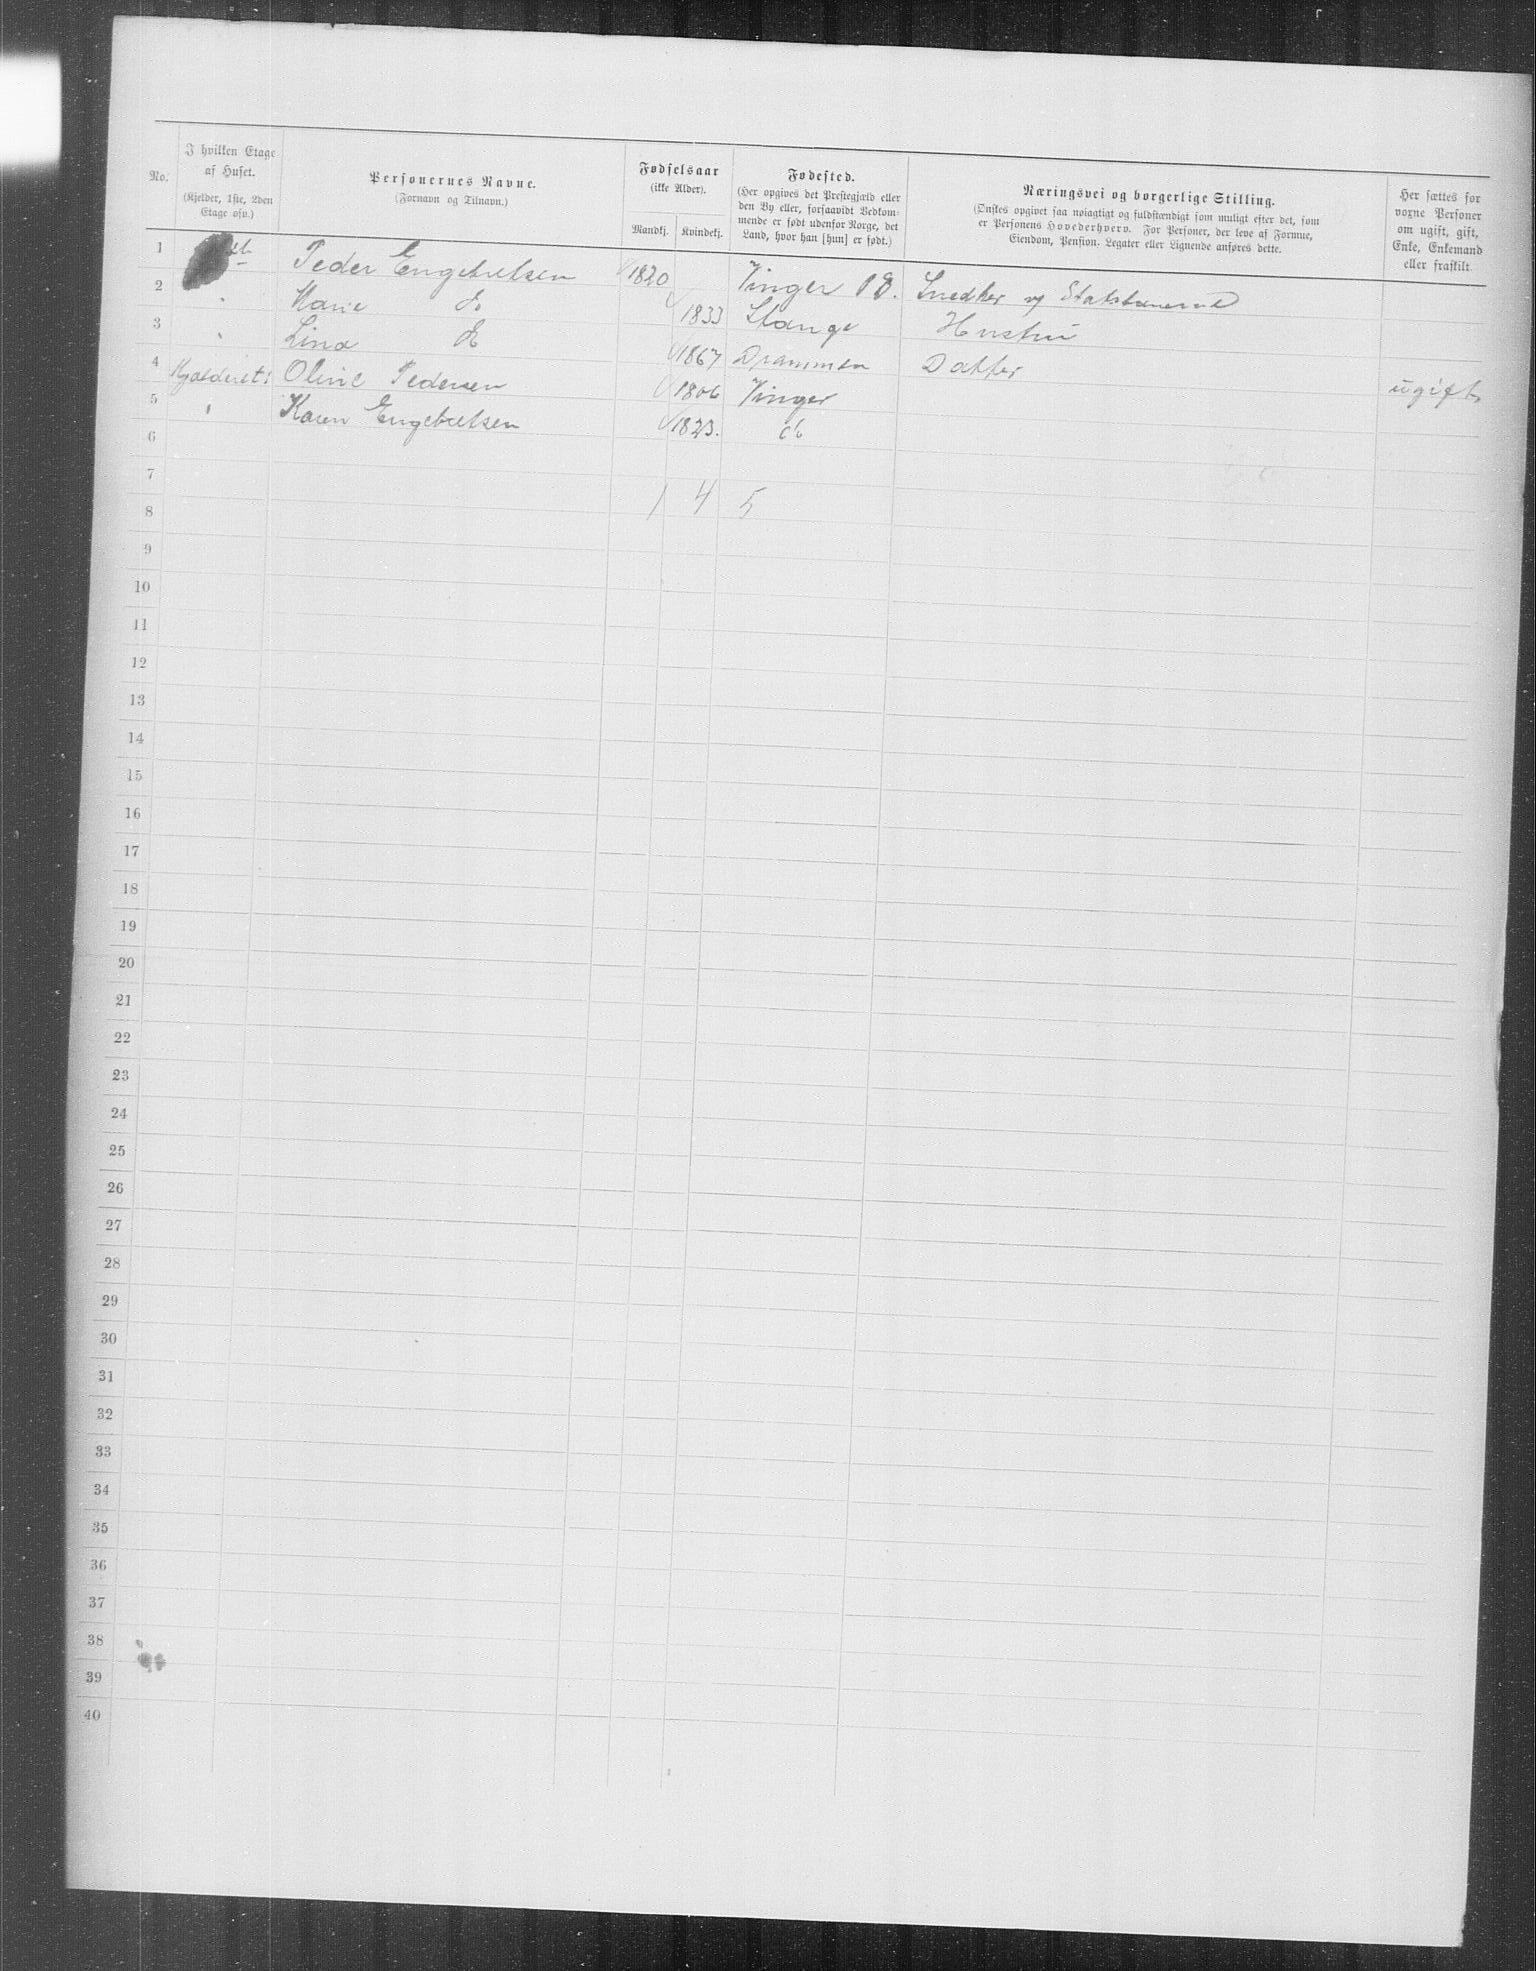 No.
I hvilken Etage af Huset.
(Kjelder, 1ste, 2den Etage osv.)
Personernes Navne.
(Fornavn og Tilnavn.)
Fødselsaar
(ikke Alder).
Mandkj. Kvindekj.
Fødested.
(Her opgives det Prestegjæld eller
den By eller, forsaavidt Vedkom-
mende er født udenfor Norge, det
Land, hvor han [hun] er født.)
Næringsvei og borgerlige Stilling.
(Ønskes opgivet saa nøiagtigt og fuldstændigt som muligt efter det, som
er Personens Hovederhverv. For Personer, der leve af Formue,
Eiendom, Pension, Legater eller Lignende anføres dette.
Her sættes for
voxne Personer
om ugift, gift,
Enke, Enkemand
eller fraskilt.
1 Peder Engebretsen 1820 Vinger Snedker og
2 Marie do 1833 Stange Hustru
3 Lina E 1867 Drammen Datter
4 Kjælderet: Oline Pedersen 1806 Vinger ugift
5 " Karen Engebretsen 1823. do
6
7 1 4 5
8
9
10
11
12
13
14
15
16
17
18
19
20
21
22
23
24
25
26
27
28
29
30
31
32
33
34
35
36
37
38
39
40